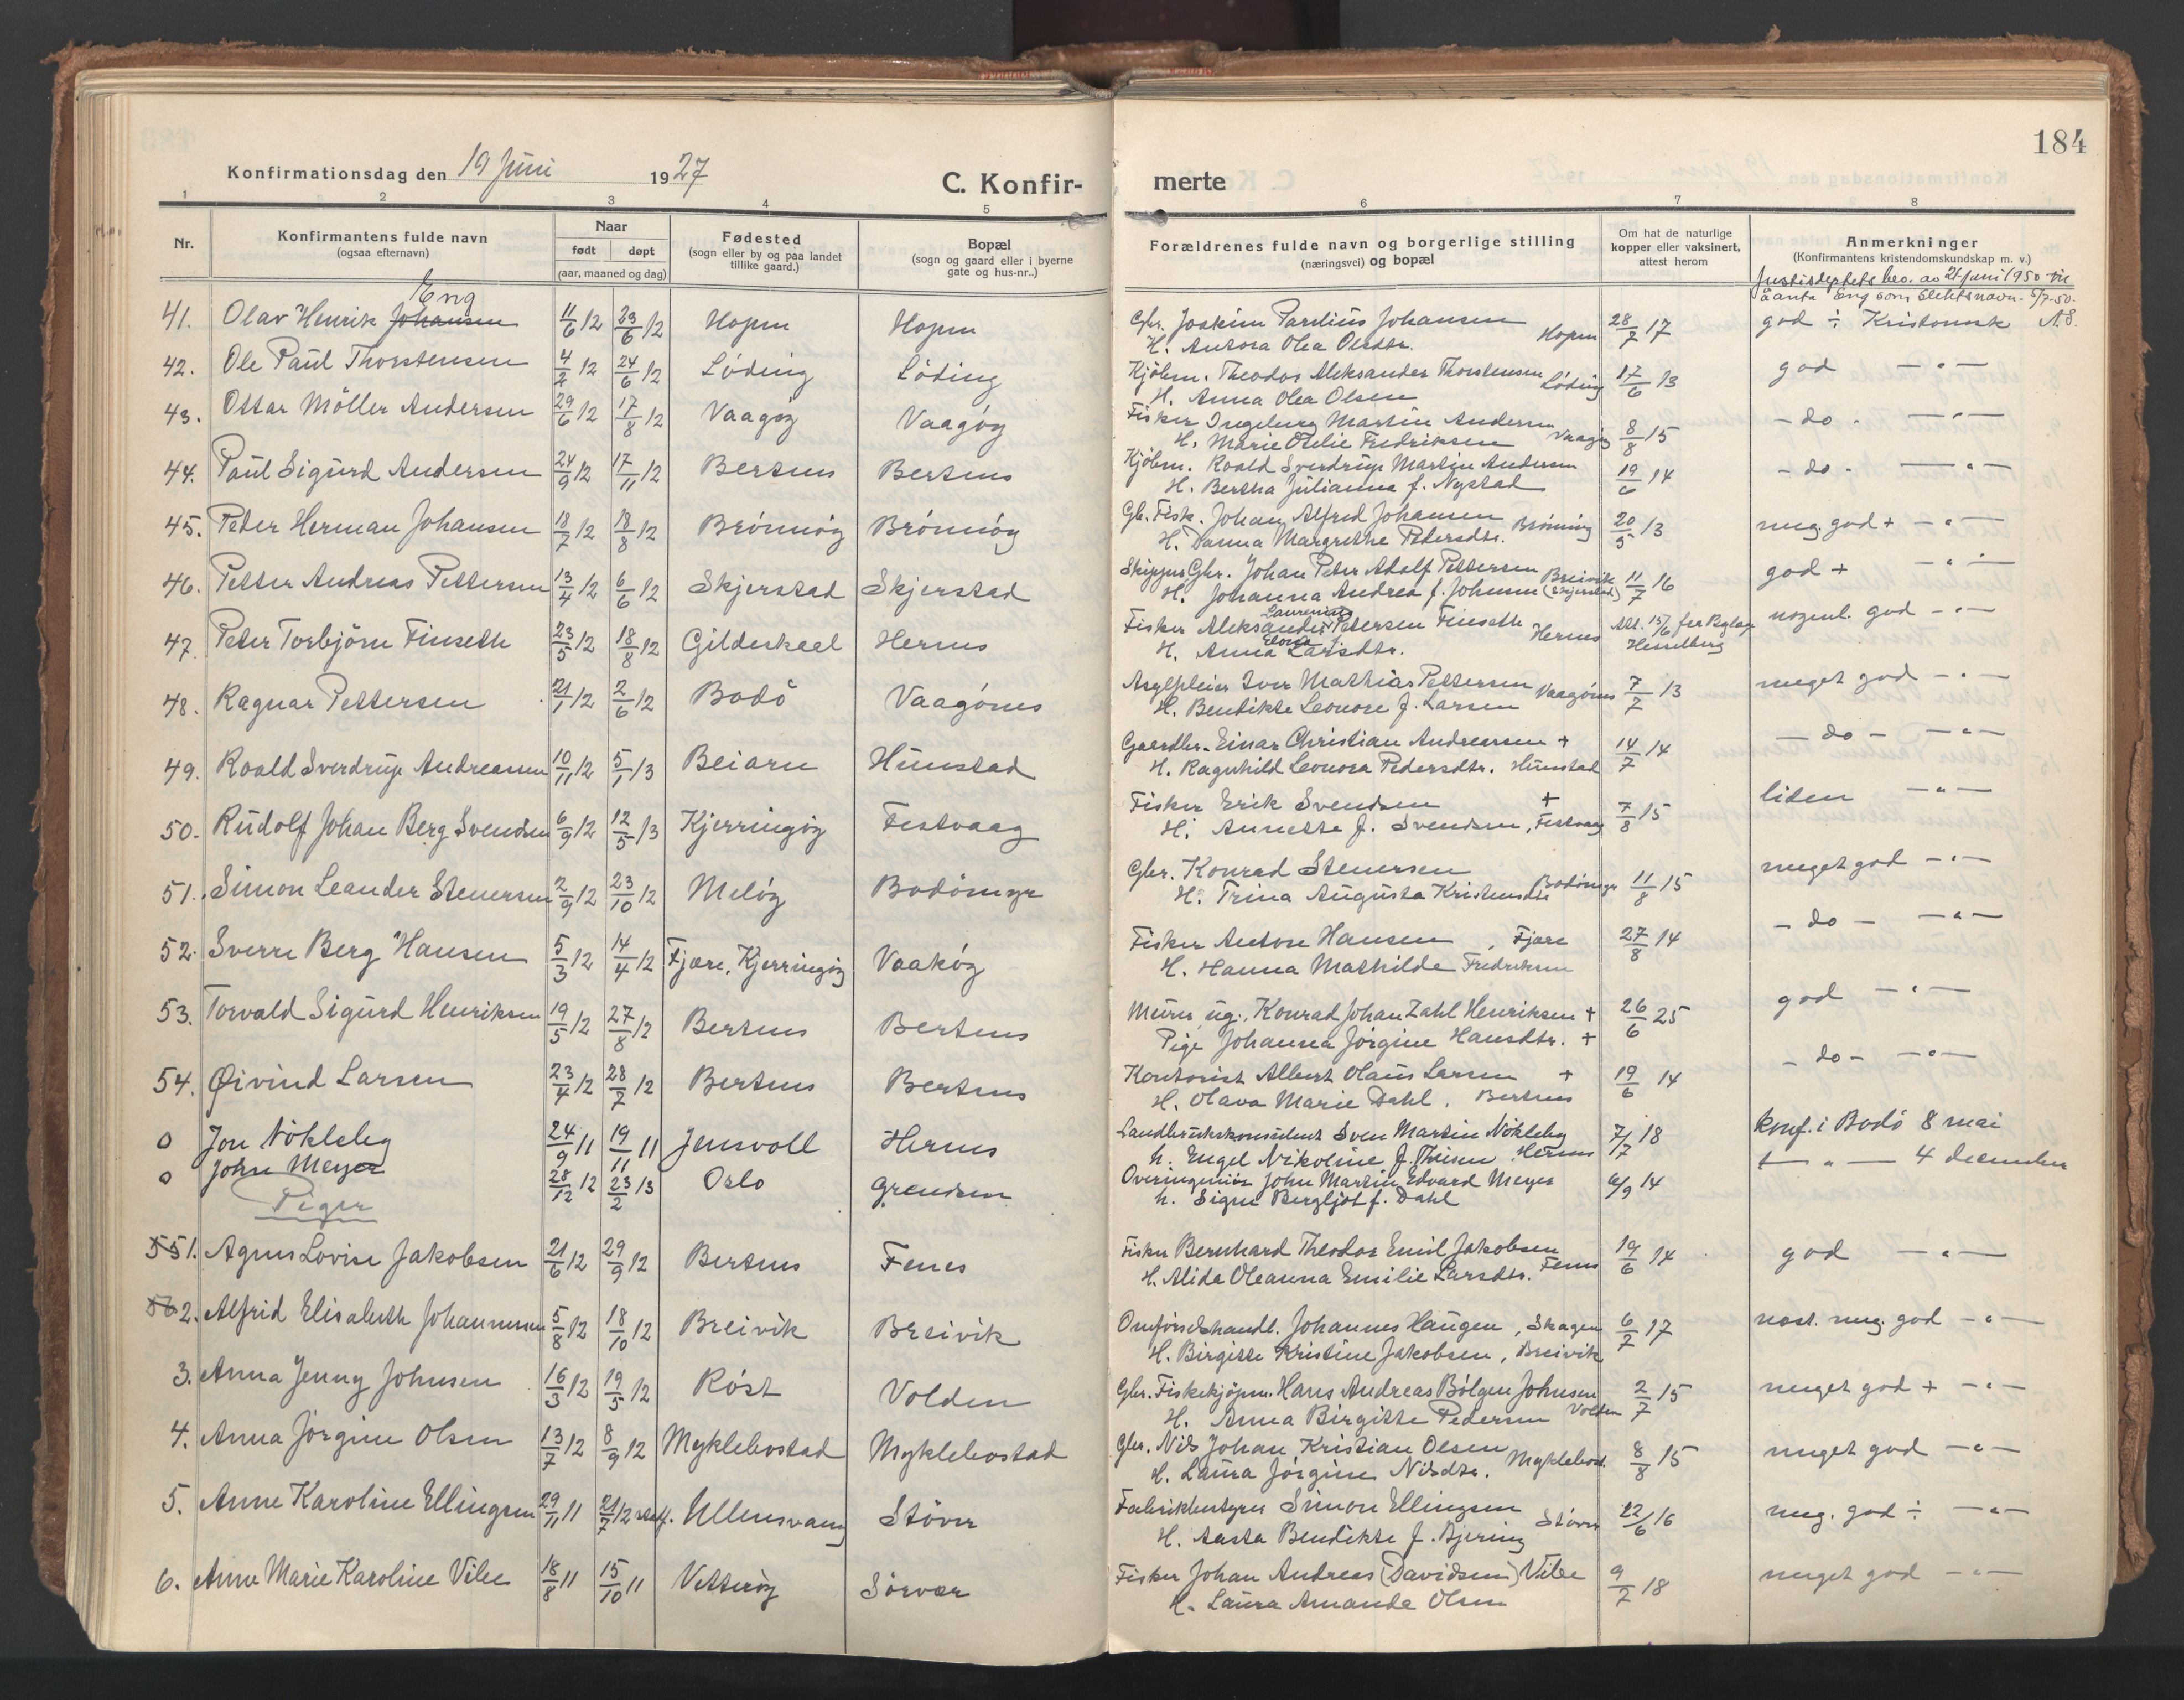 184
Konfirmationsdag den 19 Juni 1927
C. Konfirmerte
1 2 3 4 5 6 7 8
Nr. Konfirmantens fulde navn (ogsaa efternavn) Naar født døpt (aar, maaned og dag) Fødested (sogn eller by og paa landet tillike gaard.) Bopæl (sogn og gaard eller i byerne gate og hus-nr..) Forældrenes fulde navn og borgerlige stilling (næringsvei) og bopæl Om hat de naturlige kopper eller vaksinert, attest herom Anmerkninger (Konfirmantens kristendomskundskap m. v.)
Justisdeptets bev. av 21 juni 1950 til
å anta Eng som slektsnavn. 5/7-50. A.S.
Eng
41. Olav Henrik Johansen 11/6 12 23/6 12 Hopen Hopen Gbr. Joakim Parelius Johansen Hopen 28/7 17 god ÷ Kristounsk
H. Aurora Olea Olsdtr.
42. Ole Paul Thorstensen 4/2 12 24/6 12 Löding Löding Kjöbm. Theodor Aleksander Thorstensen Löding 17/6 13 god — " —
H. Anna Olea Olsen
43. Ottar Möller Andersen 29/6 12 17/8 12 Vaagöy Vaagöy Fisker Ingeburg Martin Andersen Vaagöy 8/8 15 - do - — " —
H. Marie Otelie Fredriksen
44. Paul Sigurd Andersen 24/9 12 17/11 12 Bertnes Bertnes Kjöbm. Roald Sverdrup Martin Andersen 19/6 14 - do - — " —
H. Bertha Julianna f. Nystad
45. Peder Herman Johansen 18/7 12 18/8 12 Brönnöy Brönnöy Gb. Fisk. Johan Alfred Johansen Brönnöy 20/5 13 meg. god + — " —
H. Danna Margrethe Pedersdtr.
46. Petter Andreas Pettersen 13/4 12 6/6 12 Skjerstad Skjerstad Skipper Gbr. Johan Peter Adolf Pettersen Breivik 11/7 16 god + — " —
H. Johanna Andrea f. Johnsen (Skjerstad)
47. Peter Torbjörn Finseth 23/5 12 18/8 12 Gildeskaal Hernes Fisker Aleksander Laurenius Petersen Finseth Hernes Att. 15/6 fra Bylæge Hesselberg nogenl. god — " —
H. Anna Larsdtr.
48. Ragnar Pettersen 21/1 12 2/6 12 Bodö Vaagönes Asylpleier Iver Mathias Pettersen Vaagönes 7/7 13 meget god — " —
H. Bendikte Leonore f. Larsen
49. Roald Sverdrup Andreassen 10/11 12 5/1 13 Beiarn Hunstad Gaardbr. Einar Christian Andreassen + 14/7 14 - do - — " —
H. Ragnhild Leonora Pedersdtr. Hunstad
50. Rudolf Johan Berg Svendsen 6/9 12 12/5 13 Kjerringöy Festvaag Fisker Erik Svendsen + 7/8 15 liden — " —
H. Annette f. Svendsen, Festvaag
51. Simon Leander Stenersen 2/9 12 23/10 12 Melöy Bodömyr Gbr. Konrad Stenersen Bodömyr 11/8 15 meget god — " —
H. Trina Augusta Kristensdtr
52. Sverre Berg Hansen 5/3 12 14/4 12 Fjære, Kjerringöy Vaaköy Fisker Anton Hansen, Fjære 27/8 14 - do - — " —
H. Hanna Mathilde Fredriksen
53. Torvald Sigurd Henriksen 19/5 12 27/8 12 Bertnes Bertnes Murer, ug. Konrad Johan Zahl Henriksen + 26/6 25 god — " —
Pige Johanna Jörgine Hansdtr. +
54. Øivind Larsen 23/4 12 28/7 12 Bertnes Bertnes Kontorist Albert Olaus Larsen + 19/6 14 - do - — " —
H. Olava Marie Dahl. Bertnes
0 Jon Nökleby 24/9 11 19/11 11 Jensvoll Hernes Landbrukskonsulent Sven Martin Nökleby 7/7 18 konf. i Bodö 8 mai
h. Engel Nikoline f. Theisen Hernes
0 John Meyer 28/12 12 23/2 13 Oslo Grendsen Overingeniör John Martin Edvard Meyer 6/9 14 — " — 4 december
h. Signe Bergljot f. Dahl
Piger
551. Agnes Lovise Jakobsen 21/6 12 29/9 12 Bertnes Fenes Fisker Bernhard Theodor Emil Jakobsen Fenes 19/6 14 god — " —
H. Alida Oleanna Emilie Larsdtr.
562. Alfrid Elisabeth Johannessen 5/8 12 18/10 12 Breivik Breivik Omförselshandl. Johannes Haugen, Skagen 6/7 17 næst. meg. god — " —
H. Birgitte Kristine Jakobsen, Breivik
3. Anna Jenny Johnsen 16/3 12 19/5 12 Röst Volden Gbr. Fiskekjöpm. Hans Andreas Bölgen Johnsen 2/7 15 meget god + — " —
H. Anna Birgitte Pedersen Volden
4. Anna Jörgine Olsen 13/7 12 8/9 12 Myklebostad Myklebostad Gbr. Nils Johan Kristian Olsen Myklebost. 8/8 15 meget god — " —
H. Laura Jörgine Nilsdtr.
5. Anne Karoline Ellingsen 29/11 11 21/7 12 Ullensvang Stöver Fabrikbestyrer Simon Ellingsen Stöver 22/6 16 meg. god ÷ — " —
H. Aasta Bendikte f. Bjering
6. Anne Marie Karoline Vibe 18/8 11 15/10 11 Vetteröy Sörvær Fisker Johan Andreas (Davidsen) Vibe 9/7 18 meget god — " —
H. Laura Amanda Olsen